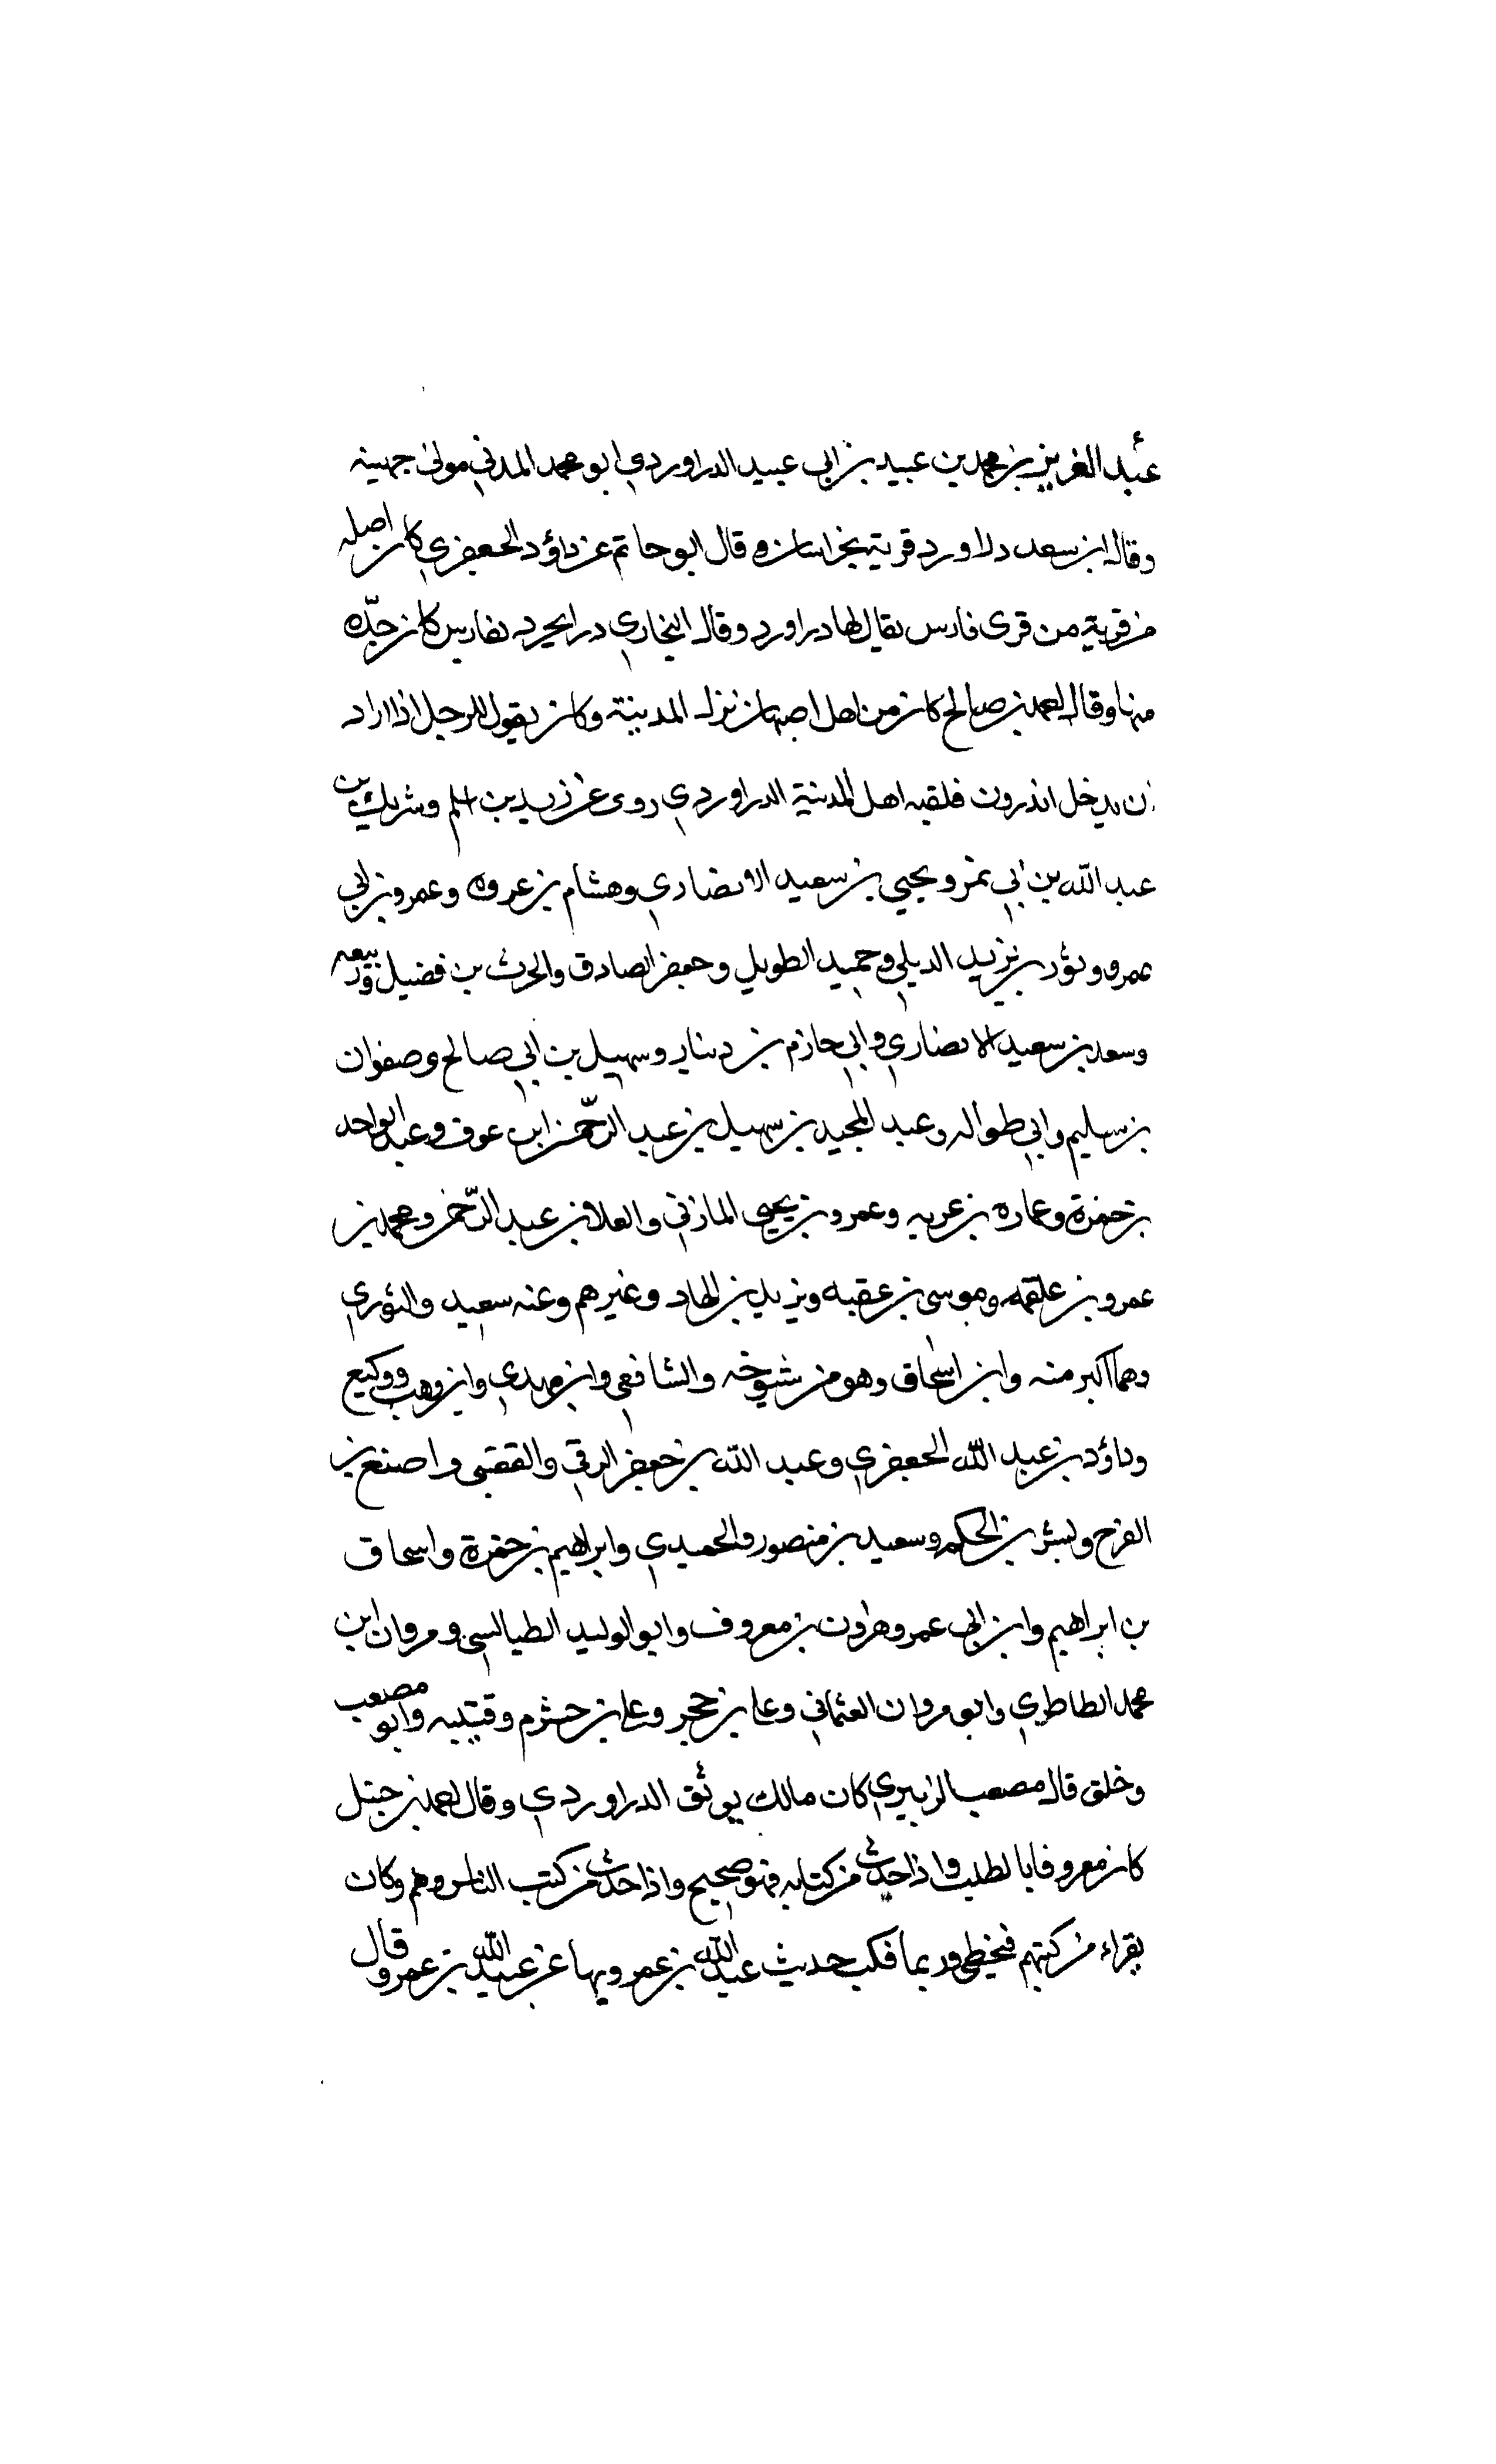 عبد العزيز بن محمد بن عبيد بن ابي عبيد الدراوردي ابو محمد المدني مولى جهينه
وقال ابن سعد دراورد قرية بخراسان وقال ابو حاتم عن داؤد الجعفري كان اصله
من قرية من قرى فارس يقال لها دراورد وقال البخاري درابجرد بفارس كان جدّه
منها وقال احمد بن صالح كان من اهل اصبهان نزل المدينة وكان يقول للرجل اذا اراد
ان يدخل اندرون فلقبه اهل المدينة الدراوردي روى عن زيد بن اسلم وشريك بن
عبد الله بن ابي نمر ويحيي بن سعيد الانصاري وهشام بن عروه وعمرو بن ابي
عمرو وثور بن يزيد الديلي وحميد الطويل وجعفر الصادق والحرث بن فضيل وربيعه
وسعد بن سعيد الانصاري وابي حازم بن دينار وسهيل بن ابي صالح وصفوان
بن سليم وابي طواله وعبد المجيد بن سهيل بن عبد الرّحمن ابن عوف وعبد الواحد
بن حمزة وعماره بن غزيه وعمرو بن يحيى المازني والعلا بن عبد الرّحمن ومحمد بن
عمرو بن علقمه وموسى بن عقبه ويزيد بن الهاد وغيرهم وعنه سعيد والثوري
وهما اكبر منه وابن اسحاق وهو من شيوخه والشافعي وابن مهدي وابن وهب ووكيع
وداؤد بن عبد الله الجعفري وعبد الله بن جعفر الرقي والقعنبى واصبغ بن
الفرج وبشر بن الحكم وسعيد بن منصور والحميدي وابراهيم بن حمزة واسحاق
بن ابراهيم وابن ابي عمر وهارون بن معروف وابو الوليد الطيالسى ومروان ابن
محمد الطاطري وابو مروان العثماني وعلي بن حجر وعلي بن خشرم وقتيبه وابو مصعب
وخلق قال مصعب الزبيري كان مالك يوثق الدراوردي وقال احمد بن حنبل
كان معروفا بالطلب واذا حدث من كتابه فهو صحيح واذا حدث من كتب الناس وهم وكان
يقراء من كتبهم فيخطي وربما قلب حديث عبد الله بن عمر ويها عن عبيد الله بن عمر وقال